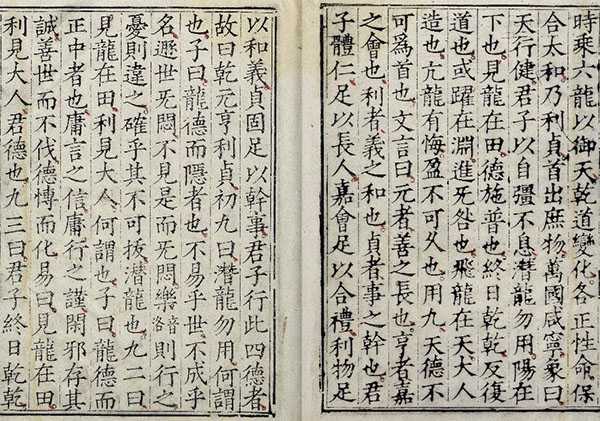 時乘六龍以御天乾道變化各正性命保
合太和乃利貞首出庶物萬國咸寧象曰
天行健君子以自彊不息潛龍勿用陽在
下也見龍在田德施普也終日乾乾反復
道也或躍在淵進无咎也飛龍在天大人
造也亢龍有悔盈不可久也用九天德不
可爲首也文言曰元者善之長也亨者嘉
之會也利者義之和也貞者事之幹也君
子體仁足以長人嘉會足以合禮利物足
以和義貞固足以幹事君子行此四德者
故曰乾元亨利貞初九曰潛龍勿用何謂
也子曰龍德而隱者也不易乎世不成乎
名遯世无悶不見是而无悶樂音洛則行之
憂則違之確乎其不可拔潛龍也九二曰
見龍在田利見大人何謂也子曰龍德而
正中者也庸言之信庸行之謹閑邪存其
誠善世而不伐德博而化易曰見龍在田
利見大人君德也九三曰君子終日乾乾